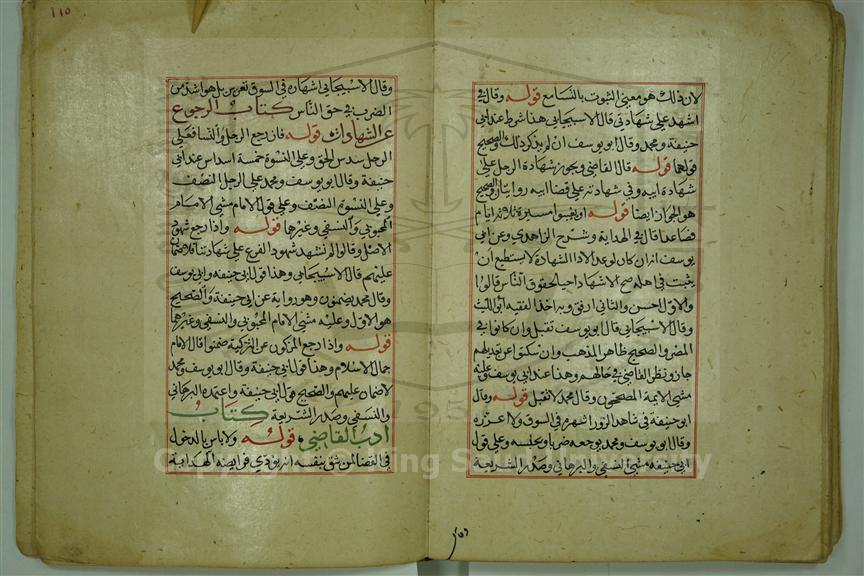 لان ذلك هو معنى الثبوت بالتسامع قوله وقال في
اشهد على شهادتي قال الاسبيجابي هذا شرط عند ابي
حنيفة ومحمد وقال ابو يوسف ان لم يذكر ذلك والصحيح
قولهما قوله قال القاضي ويجوز شهادة الرجل على
شهادة ابيه وفي شهادته على قضا ابيه روايتان والصحيح
هو الجواز ايضا قوله او يغيبوا مسيرة ثلاثة ايام
فصاعدا قال في الهداية وشرح الزاهدي وعن ابي
يوسف انه ان كان لو غدا لادا الشهادة لا يستطيع ان
يثبت في اهله صح الاشهاد احيا لحقوق الناس قالوا
والاول احسن والثاني ارفق وبه اخذ الفقيه ابو الليث
وقال الاسبيجابي قال ابو يوسف تقبل وان كانوا في
المصر والصحيح ظاهر المذهب وان سكتوا عن تعديلهم
جاز ونظر القاضي في حالهم وهذا عند ابي يوسف وعليه
مشى الايمة المصححون وقال محمد لا تقبل قوله وقال
ابو حنيفة في شاهد الزور اشهره في السوق ولا اعزره
وقال ابو يوسف ومحمد نوجعه ضربا ونحبسه وعلى قول
ابي حنيفة مشى النسفي والبرهاني وصدر الشريعة
وقال
110
وقال الاسبيجابي اشهاره في السوق تعزير بل هو اشد من
الضرب في حق الناس كتاب الرجوع
عن الشهادات قوله فان رجع الرجل والنسا فعلى
الرجل سدس الحق وعلى النسوة خمسة اسداس عند ابي
حنيفة وقال ابو يوسف ومحمد على الرجل النصف
وعلى النسوة النصف وعلى قول الامام مشى الامام
المحبوبي والنسفي وغيرهما قوله واذا رجع شهود
الاصل وقالوا لم نشهد شهود الفرع على شهادتنا فلا ضمان
عليهم قال الاسبيجابي وهذا قول ابي حنيفة وابي يوسف
وقال محمد يضمنون وهو رواية عن ابي حنيفة والصحيح
هو الاول وعليه مشى الامام المحبوبي والنسفي وغيرهما
قوله واذا رجع المزكون عن التزكية ضمنوا قال الامام
جمال الاسلام وهذا قول ابي حنيفة وقال ابو يوسف ومحمد
لا ضمان عليهم والصحيح قول ابي حنيفة واعتمده البرهاني
والنسفي وصدر الشريعة كتاب
ادب القاضي قوله ولا باس بالدخول
في القضا لمن يثق بنفسه انه يودي فرايضه الهداية